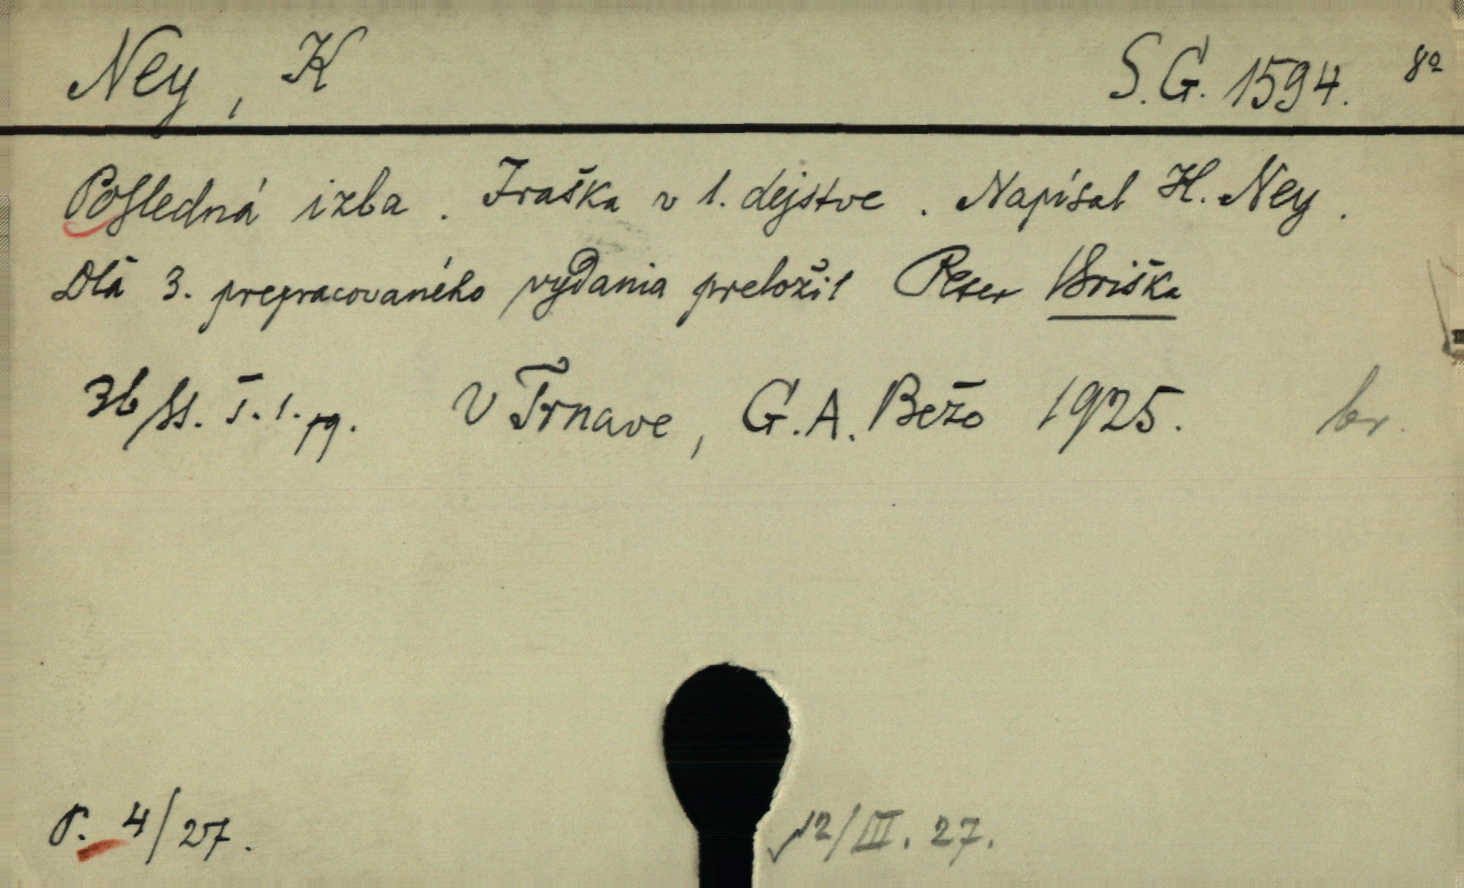 Ney, K S.G. 1594. 8º
Posledná izba. Fraška v 1. dejstve. Napísal H. Ney.
Dlá 3. prepracovaného vydania preložil Peter Briška
36/ss. 1. pg. V Trnave, G.A. Bežo 1925. br.
4/27. 12/III. 27.